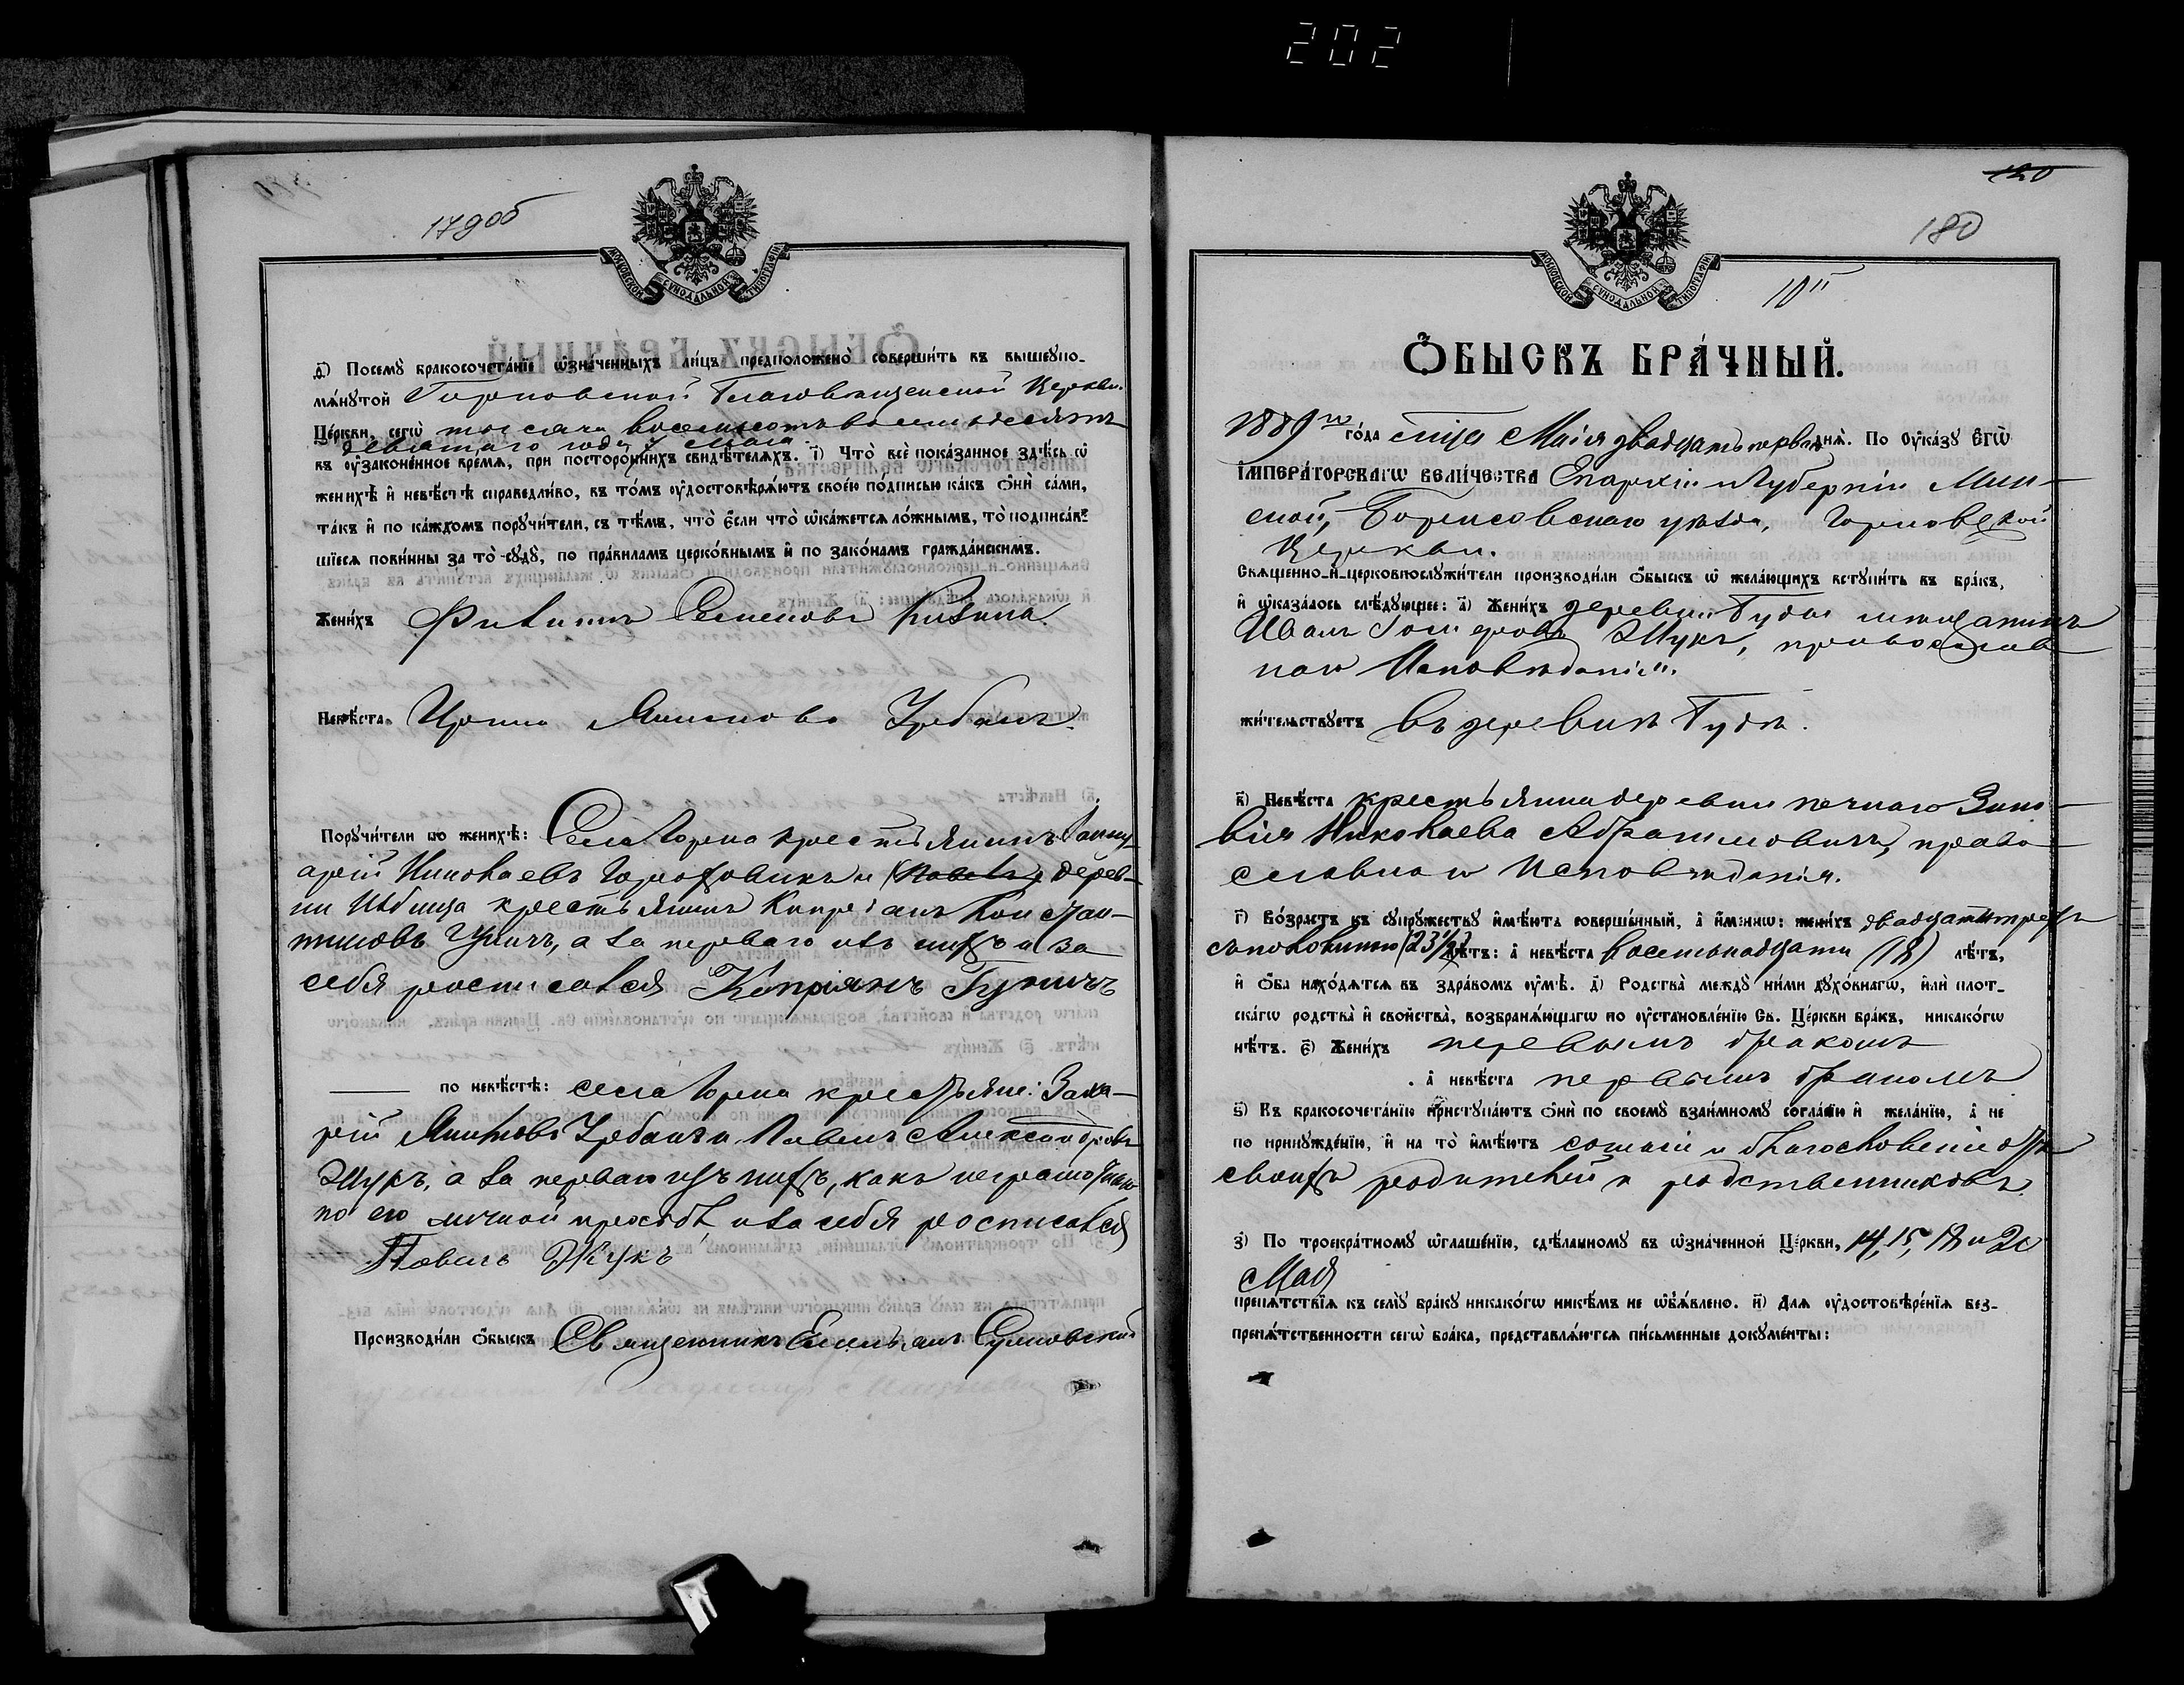 202
179об
МОСКОВСКОЙ СѴНОДАЛЬНОЙ ТИПОГРАФІИ
д҃) Посемꙋ̀ бракосочета́нїе ѡ҆зна́ченныхъ ли́цъ предположено̀ соверши́ть въ вышеꙋпо-
мѧ́нꙋтой Горновской Благовѣщенской Церкви.
Це́ркви, сегѡ̀ тысяча восемьсотъ восемьдесятъ
девятаго года 7 мая
въ ᲂу҆зако́ненное вре́мѧ, при посторо́ннихъ свидѣ́телѧхъ. і҃) Что̀ всѐ пока́занное здѣ́сь ѡ҆
женихѣ̀ и҆ невѣ́стѣ справедли́во, въ то́мъ ᲂу҆достовѣрѧ́ютъ свое́ю по́дписью ка́къ ѻ҆нѝ са́ми,
та́къ и҆ по ка́ждомъ порꙋчи́тели, съ тѣ́мъ, что̀ є҆́сли что̀ ѡ҆ка́жетсѧ ло́жнымъ, то̀ подписа́в-
шїесѧ пови́нны за то̀ сꙋдꙋ̀, по пра́виламъ церко́внымъ и҆ по зако́намъ гражда́нскимъ.
Жени́хъ Филипъ Семеновъ
Невѣ́ста Ирина Якимова Урбанъ.
Порꙋчи́тели по женихѣ̀: Села Горна крестьянинъ Ianну-
арій Николаевъ и дерев-
ни крестьянинъ Кипріанъ Констан-
тиновъ а за перваго изъ нихъ и за
себя росписался Кипріянъ
по невѣ́стѣ: села Горна крестьяне: Заха-
рій Якимовъ Урбанъ и Павелъ Александровъ
Жукъ, а за перваго изъ нихъ, какъ неграмотнаго
по его личной просьбѣ, и за себя росписался
Павелъ Жукъ
Производи́ли ѻ҆́быскъ Священникъ Емельянъ
120
180
10
МОСКОВСКОЙ СѴНОДАЛЬНОЙ ТИПОГРАФІИ
Ѻ҆́БЫСКЪ БРА́ЧНЫЙ.
1889го го́да мѣсяца Маія двадцать перваго днѧ̀. По ᲂу҆ка́зꙋ Є҆гѡ̀
І҆мпера́торскагѡ вели́чества Епархіи и Губерніи Мин-
ской, Борисовскаго уѣзда, Горновской
Церкви.
Сващенно-и-церковнослꙋжи́тели производи́ли ѻ҆́быскъ ѡ҆ жела́ющихъ встꙋпи́ть въ бра́къ,
и҆ ѡ҆каза́лось слѣ́дꙋющее: а҃) Жени́хъ деревни Буды мѣщанинъ
Иванъ Жукъ, православ-
наго Исповѣданія.
жи́тельствꙋетъ въ деревнѣ Будѣ.
в҃) Невѣ́ста крестьянка деревни Зино-
вія Николаева Абрамовичъ, право-
славнаго Исповѣданія.
г҃) Во́зрастъ къ сꙋпрꙋ́жествꙋ и҆мѣ́ютъ соверше́нный, а҆ и҆́меннѡ: жени́хъ двадцати трехъ
съ половиною (23½) лѣ́тъ: а҆ невѣ́ста восемьнадцати (18) лѣ́тъ,
и҆ ѻ҆́ба нахо́дѧтсѧ въ здра́вомъ ᲂу҆мѣ̀. д҃) Родства̀ междꙋ̀ ни́ми дꙋхо́внагѡ, и҆лѝ плот-
ска́гѡ родства̀ и҆ сво́йства̀, возбранѧ́ющагѡ по ᲂу҆становле́нїю Св. Це́ркви бра́къ, никако́гѡ
нѣ́тъ. є҃) Жени́хъ первымъ бракомъ
а҆ невѣ́ста первымъ бракомъ
ѕ҃) Къ бракосочета́нїю пристꙋпа́ютъ ѻ҆нѝ по своемꙋ̀ взаи́мномꙋ согла́сїю и҆ жела́нїю, а҆ не
по принꙋжде́нїю, и҆ на то̀ и҆мѣ́ютъ согласіе и благословеніе отъ
своихъ родителей и родственниковъ.
з҃) По троекра́тномꙋ ѡ҆глаше́нїю, сдѣ́ланномꙋ въ ѡ҆зна́ченной Це́ркви, 14, 15, 18 и 20
Мая
препѧ́тствїѧ къ семꙋ̀ бра́кꙋ никако́гѡ никѣ́мъ не ѡ҆бъѧ́влено. и҃) Для ᲂу҆достовѣре́нїѧ без-
препѧ́тственности сегѡ̀ бра́ка, представлѧ́ютсѧ пи́сьменные докꙋме́нты: